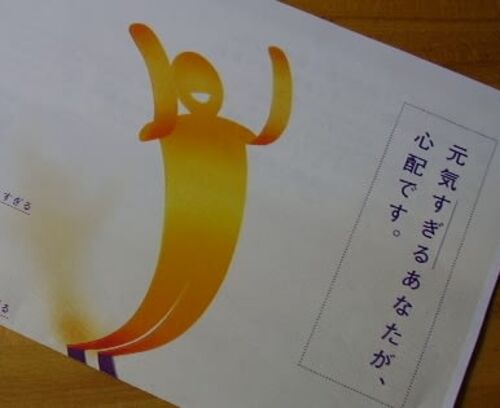 元気すぎるあなたが、
心配です。
すぎる